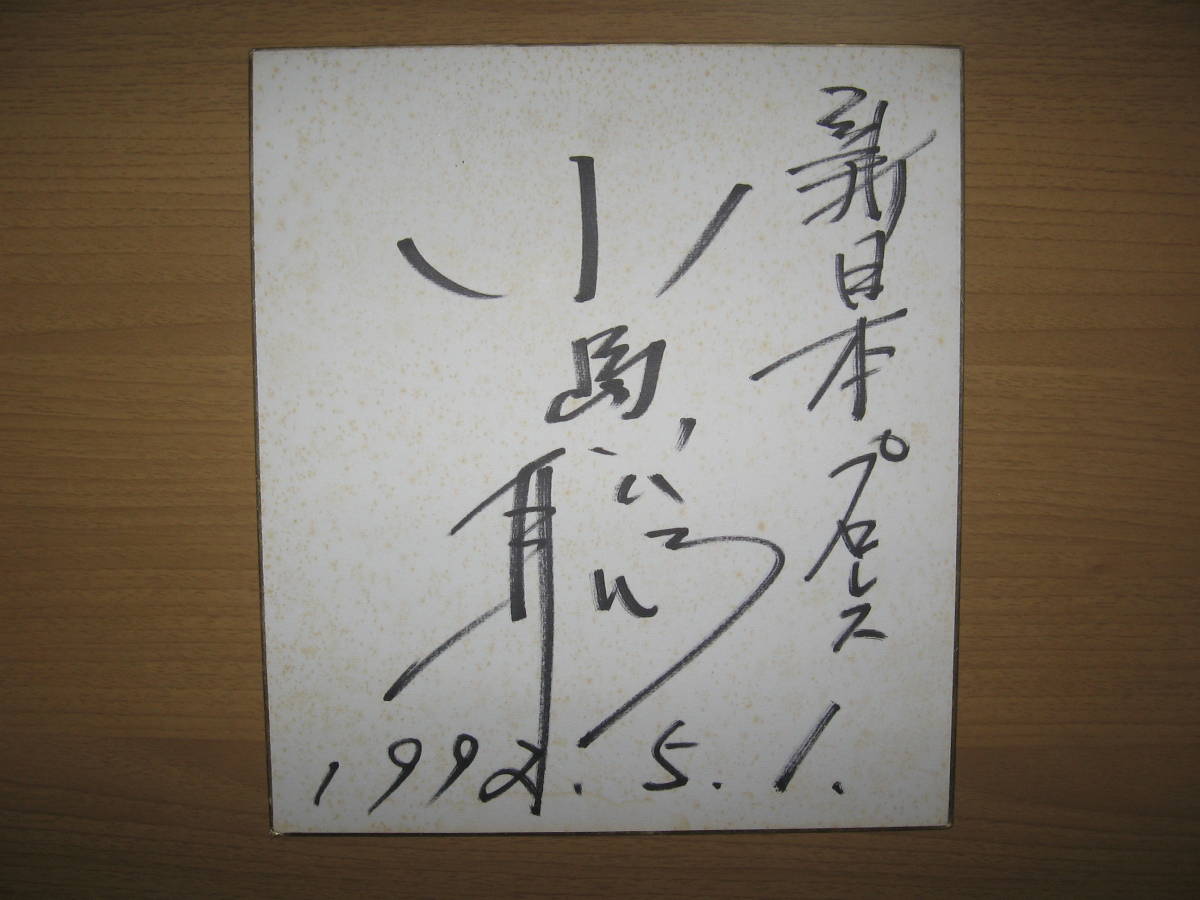 新日本プロレス
小島聡
1992.5.1.